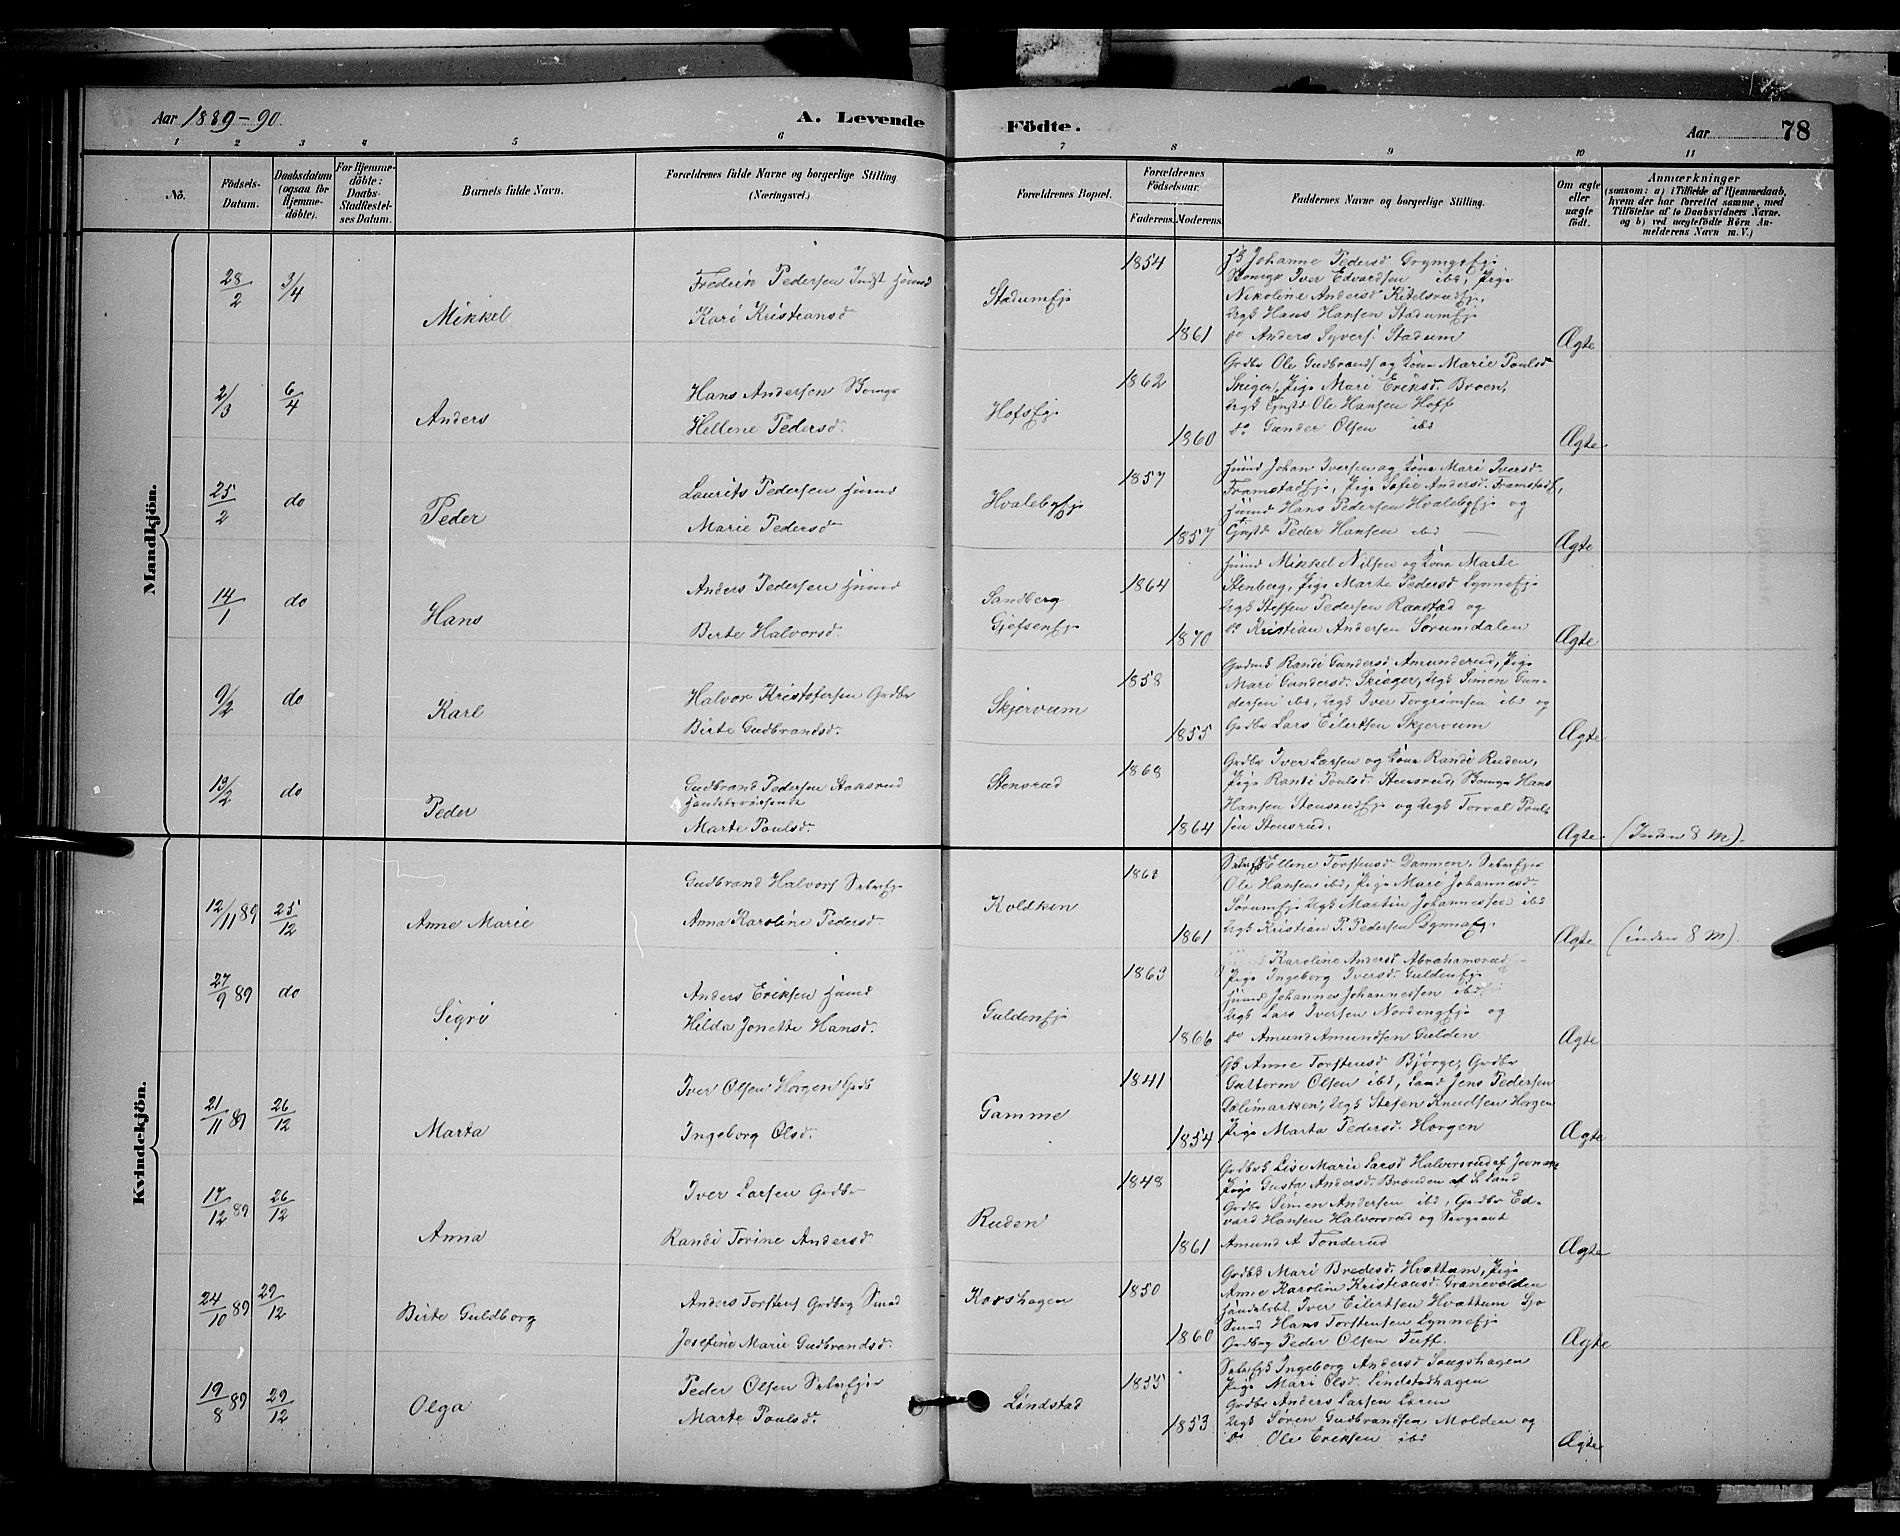 Aar 1889-90
A. Levende
Födte.
Aar
78
1 2 3 4 5 6 7 8 9 10 11
No.
Födsels-Datum.
Daabsdatum (ogsaa for Hjemmedöbte).
For Hjemmedöbte: Daabs-Stadfæstelses Datum.
Barnets fulde Navn.
Forældrenes fulde Navne og borgerlige Stilling (Næringsvei).
Forældrenes Bopæl.
Forældrenes Födselsaar.
Faderens. Moderens.
Faddernes Navne og borgerlige Stilling.
Om ægte eller uægte födt.
Anmærkninger
(saasom: a) i Tilfælde af Hjemmedaab, hvem der har forrettet samme, med Tilföielse af to Daabsvidners Navne, og b) ved uægtefödte Börn Anmelderens Navn m. V.)
Mandkjön.
28/2 3/4
Mikkel
Fredrik Pedersen Indst Huusmd
Kari Kristiansd
Stadumeje
1854
1861
Johanne Pedersd
Iver Edvardsen ibd, Pige
Nikoline Andersd
Ungk Hans Hansen Stadumeje
do Anders Syvers. Stadum
Ægte
2/3 6/4
Anders
Hans Andersen
Hellene Pedersd.
Hofseje
1862
1860
Grdbr Ole Gudbrands og Kone Marie Poulsd
Skiger, Pige Mari Eriksd. Broen,
Ungk Ole Hansen Hoff
do Gunder Olsen ibd
Ægte.
25/2 do
Peder
Laurits Pedersen Huusmd
Marie Pedersd
Hvalebyeje
1857
1857
Huusmd Johan Iversen og Kone Mari Iversd.
Framstadeje, Pige Sofie Andersd. Framstade,
Huusmd Hans Pedersen Hvalebyeje og
Peder Hansen ibd
Ægte
14/1 do
Hans
Anders Pedersen Huusmd
Birte Halvorsd.
Sandberg
Gjefseneje
1864
1870
Huusmd Mikkel Nilsen og Kone Marte
Stenberg, Pige Marte Pedersd Lynneeje
Ungk Steffen Pedersen Ranstad og
do Kristian Andersen Sørumdalen
Ægte
9/2 do
Karl
Halvor Kristofersen Grdbr
Birte Gudbrandsd.
Skjervum
1858
1855
Randi Gundersd Amunderud, Pige
Mari Gundersd. Skiager, Ungk Simen Gundersen
ibd, Ungk Iver Torgrimsen ibd og
Grdbr Lars Eilertsen Skjervum
Ægte
13/2 do
Peder
Gudbrand Pedersen Staksrud
Handelsreisende
Marte Poulsd.
Stensrud
1868
1864
Grdbr Iver Larsen og Kone Randi Ruden,
Pige Randi Poulsd. Stensrud, Hans
Hansen Stensrudeje og Ungk Torval Poulsen
Stensrud.
Ægte. (Inden 8 M).
Kvindekjön.
12/11 89 25/12
Anne Marie
Gudbrand Halvors Selveje
Anna Karoline Pedersd.
Koldken
1861
Ellene Torstensd Dammen, Selveje
Ole Hansen ibd, Pige Mari Johannesd.
Sørumeje Ungk Martin Johannessen ibd
Ungk Kristian P. Pedersen Dynnaeje.
Ægte (inden 8 M).
27/9 89 do
Sigri
Anders Eriksen Huusmd
Hilda Jonette Hansd.
Guldeneje
1863
1866
Karoline Andersd Abrahamsrud
Pige Ingeborg Iversd. Guldeneje
Huusmd Johannes Johannessen ibd
Ungk Lars Iversen Nordengeje og
do Amund Amundsen Gulden
Ægte
21/11 89 26/12
Marta
Iver Olsen Horgen Grdb
Ingeborg Olsd.
Gamme
1841
1854
Anne Torstensd Bjørge, Grdbr
Guttorm Olsen ibd, Jens Pedersen
Dælimarken, Ungk Stefen Knudsen Horgen
Pige Marta Pedersd. Horgen
Ægte
17/12 89 26/12
Anna
Iver Larsen Grdbr
Randi Torine Andersd
Ruden
1848
1861
Lise Marie Larsd Halvorsrud af Jevnaker
Pige Gusta Andersd. Brænden af S. Land
Grdbr Simen Andersen ibd, Grdbr Edvard
Hansen Halvorsrud og Sergeant
Amund A Tonderud
Ægte
24/10 89 29/12
Birte Guldborg
Anders Torstens Grdbrg Smed
Josefine Marie Gudbrandsd.
Korshagen
1850
1860
Mari Bredesd. Hvattum, Pige
Anne Karoline Kristiansd. Granevolden
Iver Eilertsen Hvattum
Smed Hans Torstensen Lynneeje
Peder Olsen Tuff.
Ægte
19/8 89 29/12
Olga
Peder Olsen Selveier
Marte Poulsd.
Lindstad
1855
1853
Ingeborg Andersd Saugshagen
Pige Mari Olsd. Lindstadhagen
Grdbr Anders Larsen Løren
Ungk Søren Gudbrandsen Molden og
do Ole Eriksen ibd
Ægte